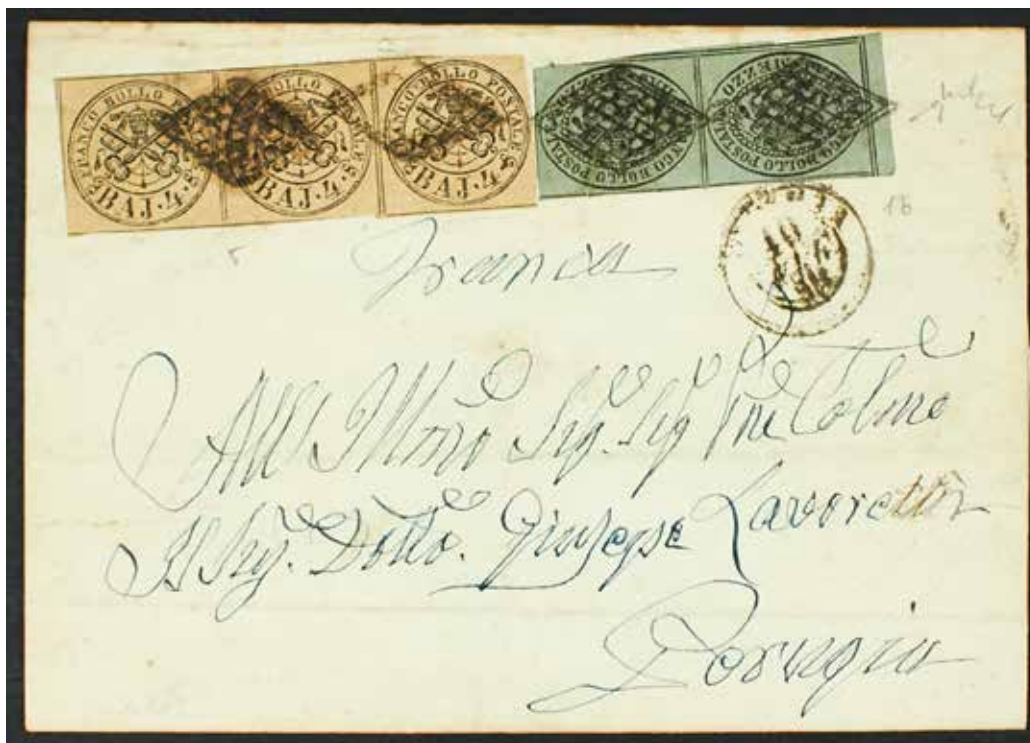 FRANCO BOLLO POSTALE BAJ. 4.
FRANCO BOLLO POSTALE BAJ. 4.
FRANCO BOLLO POSTALE BAJ. 4.
FRANCO BOLLO POSTALE
FRANCO BOLLO POSTALE MEZZO
16
10
Franca
All Illmo Sig. Sig. Pne Colmo
Il Sig. Dotto. Giuseppe Lavoretti
Perugia